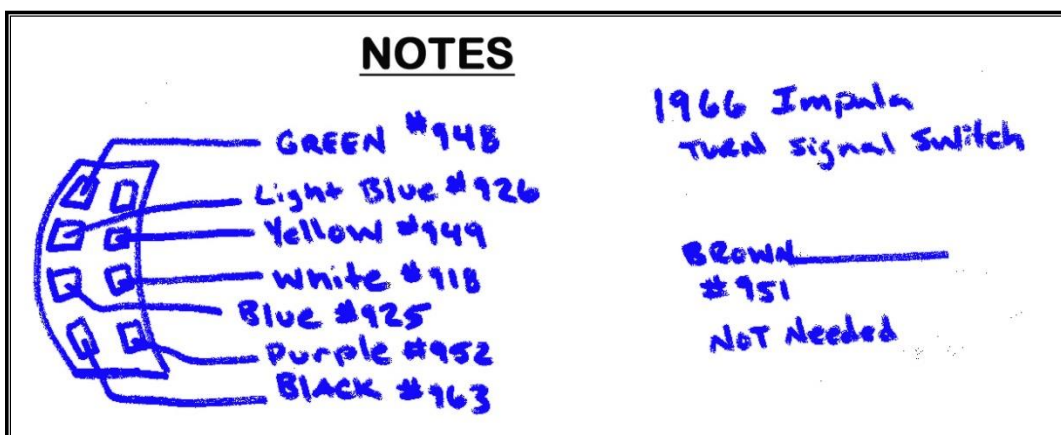 NOTES
GREEN #948
Light Blue #926
Yellow #949
White #918
Blue #925
Purple #952
BLACK #963
1966 Impala
TURN Signal Switch
BROWN
#951
NOT Needed